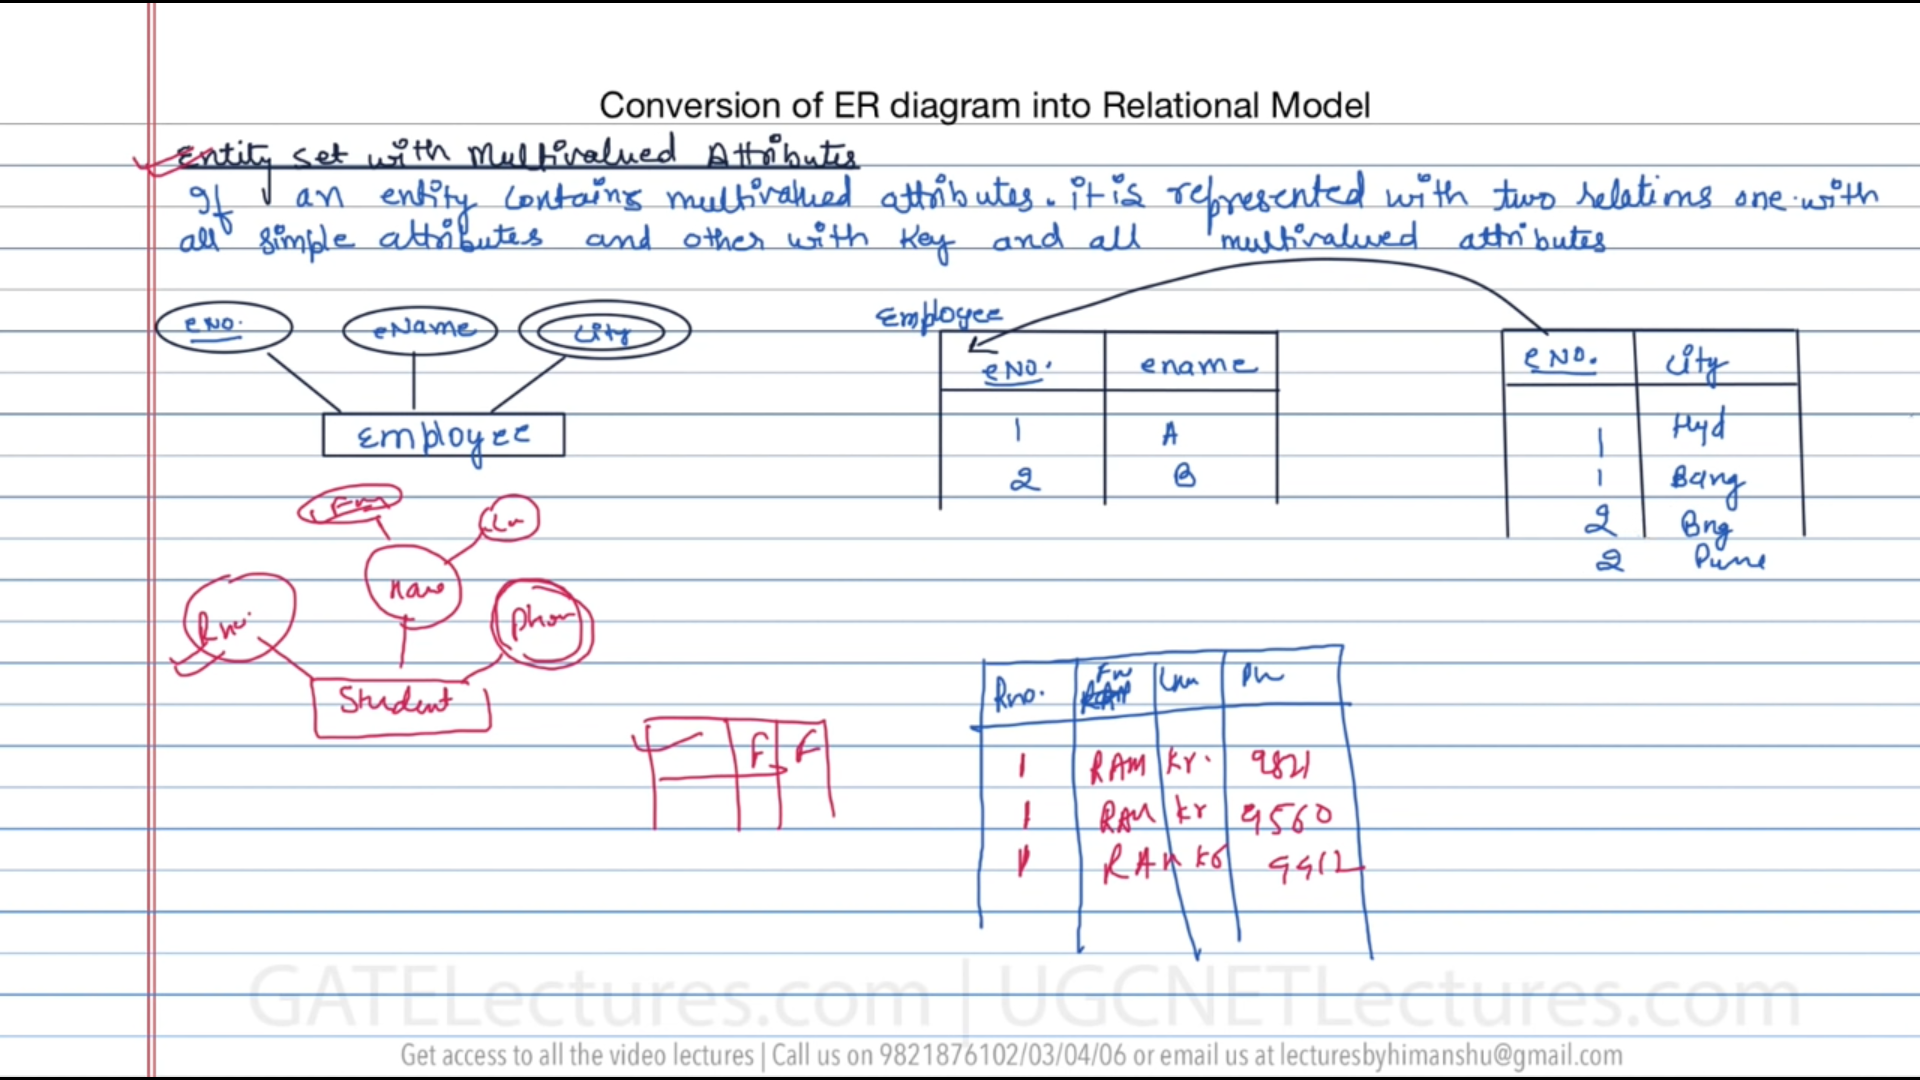 Conversion of ER diagram into Relational Model
Entity set with Multivalued Attributes
If an entity contains multivalued attributes. it is represented with two relations one with
all simple attributes and other with key and all multivalued attributes
eNO. eName City
Employee
Employee
eNO. ename
1 A
2 B
eNO. City
1 Hyd
1 Bang
2 Bng
2 Pune
Fn Ln
Name
Rno. Phon
Student
F F
Rno. Fn Lnm Ph
1 RAM kr. 9821
1 RAM kr 9560
1 RAM kr 9912
GATELectures.com | UGCNETLectures.com
Get access to all the video lectures | Call us on 9821876102/03/04/06 or email us at lecturesbyhimanshu@gmail.com